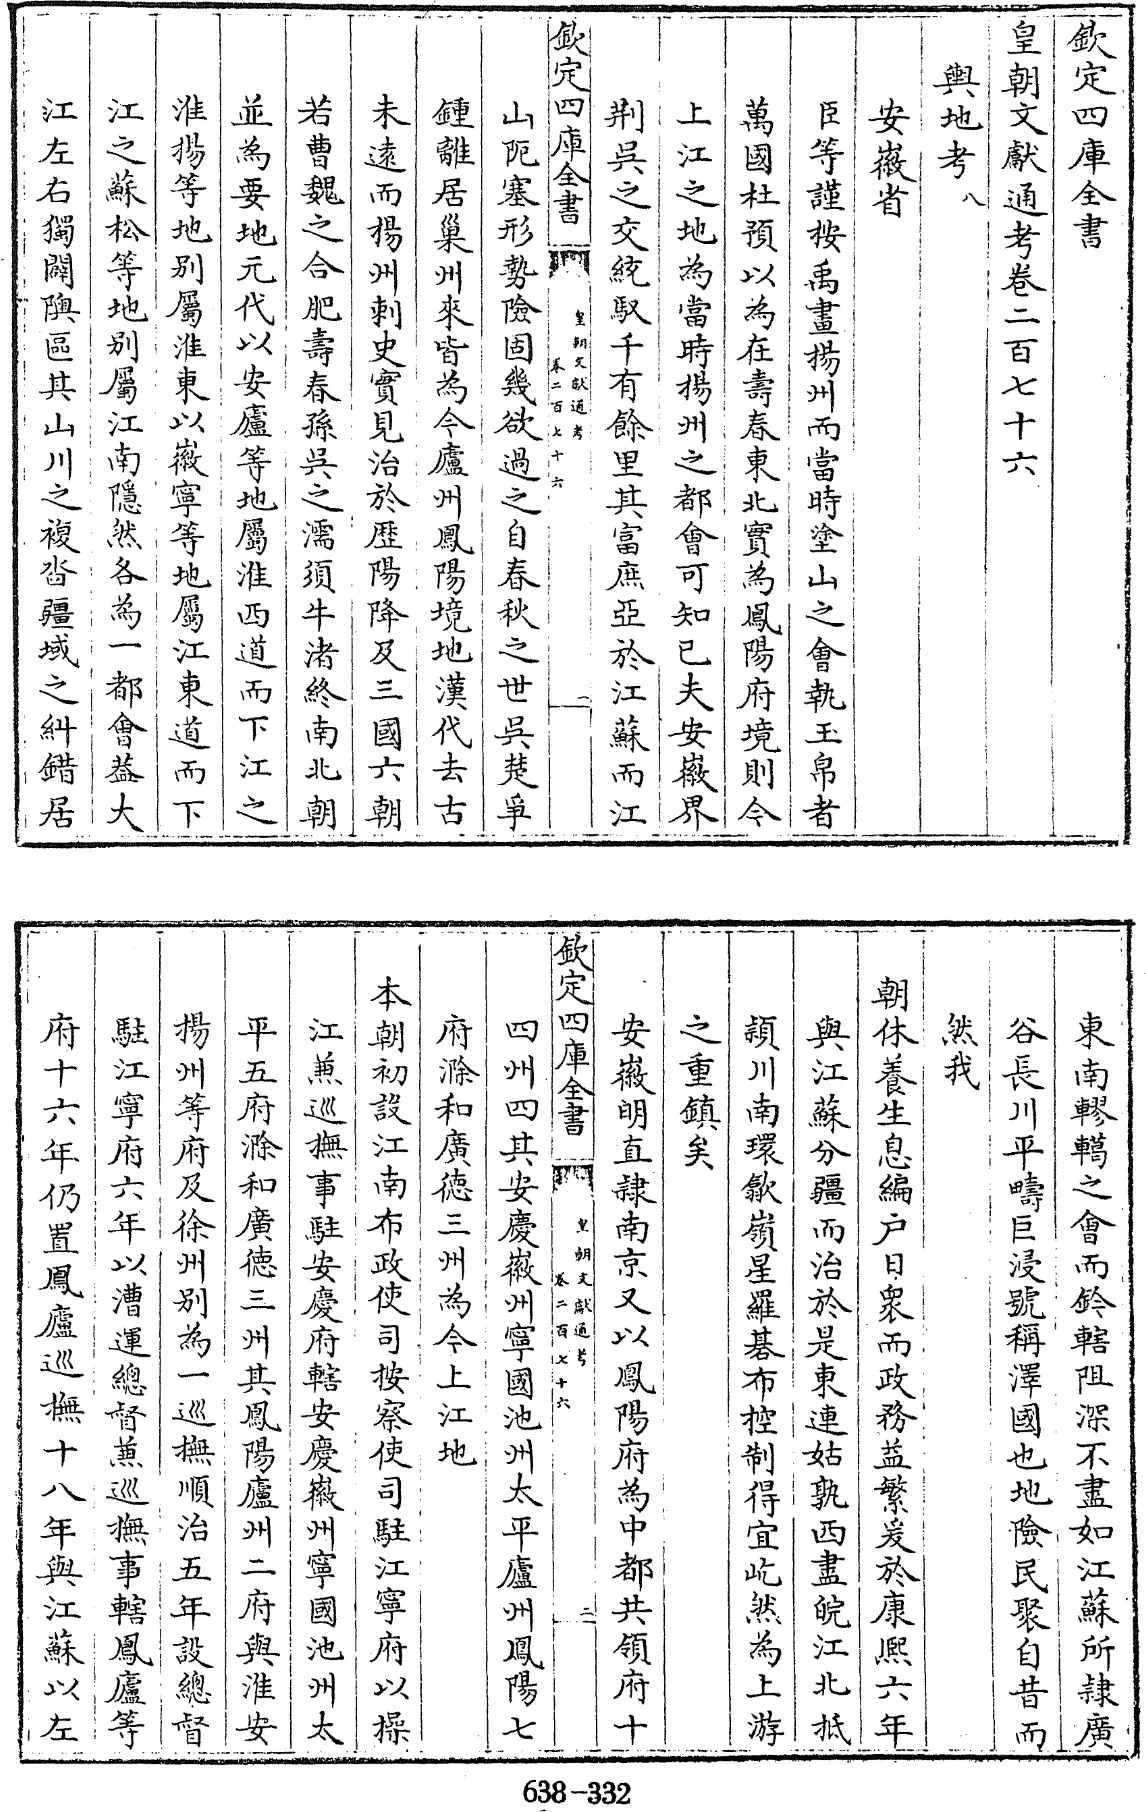 欽定四庫全書
皇朝文獻通考卷二百七十六
輿地考八
安徽省
臣等謹按禹畫揚州而當時塗山之會執玉帛者
萬國杜預以為在壽春東北實為鳳陽府境則今
上江之地為當時揚州之都會可知已夫安徽界
荆吳之交統馭千有餘里其富庶亞於江蘇而江
欽定四庫全書
皇朝文獻通考
卷二百七十六
一
山阨塞形勢險固幾欲過之自春秋之世吳楚爭
鍾離居巢州來皆為今廬州鳳陽境地漢代去古
未遠而揚州刺史實見治於歷陽降及三國六朝
若曹魏之合肥壽春孫吳之濡須牛渚終南北朝
並為要地元代以安廬等地屬淮西道而下江之
淮揚等地别屬淮東以徽寧等地屬江東道而下
江之蘇松等地别屬江南隱然各為一都會葢大
江左右獨闢隩區其山川之複沓疆域之糾錯居
東南轇轕之會而鈐轄阻深不盡如江蘇所隸廣
谷長川平疇巨浸號稱澤國也地險民聚自昔而
然我
朝休養生息編户日衆而政務益繁爰於康熙六年
與江蘇分疆而治於是東連姑孰西盡皖江北抵
潁川南環歙嶺星羅碁布控制得宜屹然為上游
之重鎮矣
安徽明直隸南京又以鳳陽府為中都共領府十
欽定四庫全書
皇朝文獻通考
卷二百七十六
二
四州四其安慶徽州寧國池州太平廬州鳳陽七
府滁和廣德三州為今上江地
本朝初設江南布政使司按察使司駐江寧府以操
江兼巡撫事駐安慶府轄安慶徽州寧國池州太
平五府滁和廣德三州其鳳陽廬州二府與淮安
揚州等府及徐州别為一巡撫順治五年設總督
駐江寧府六年以漕運總督兼巡撫事轄鳳廬等
府十六年仍置鳳廬巡撫十八年與江蘇以左
638-332